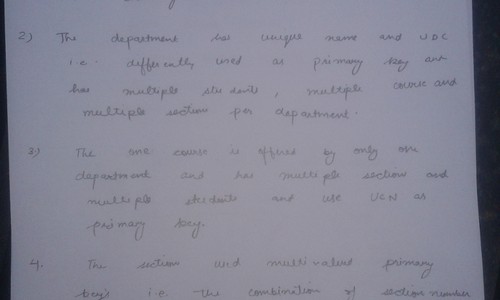 2) The department has unique name and UDC
i.e. used as primary key and
has multiple students, multiple course and
multiple section per department.
3) The one course is offered by only one
department and has multiple section and
multiple students and use UCN as
primary key.
4. The section and multivalued primary
keys i.e. the combination of section number